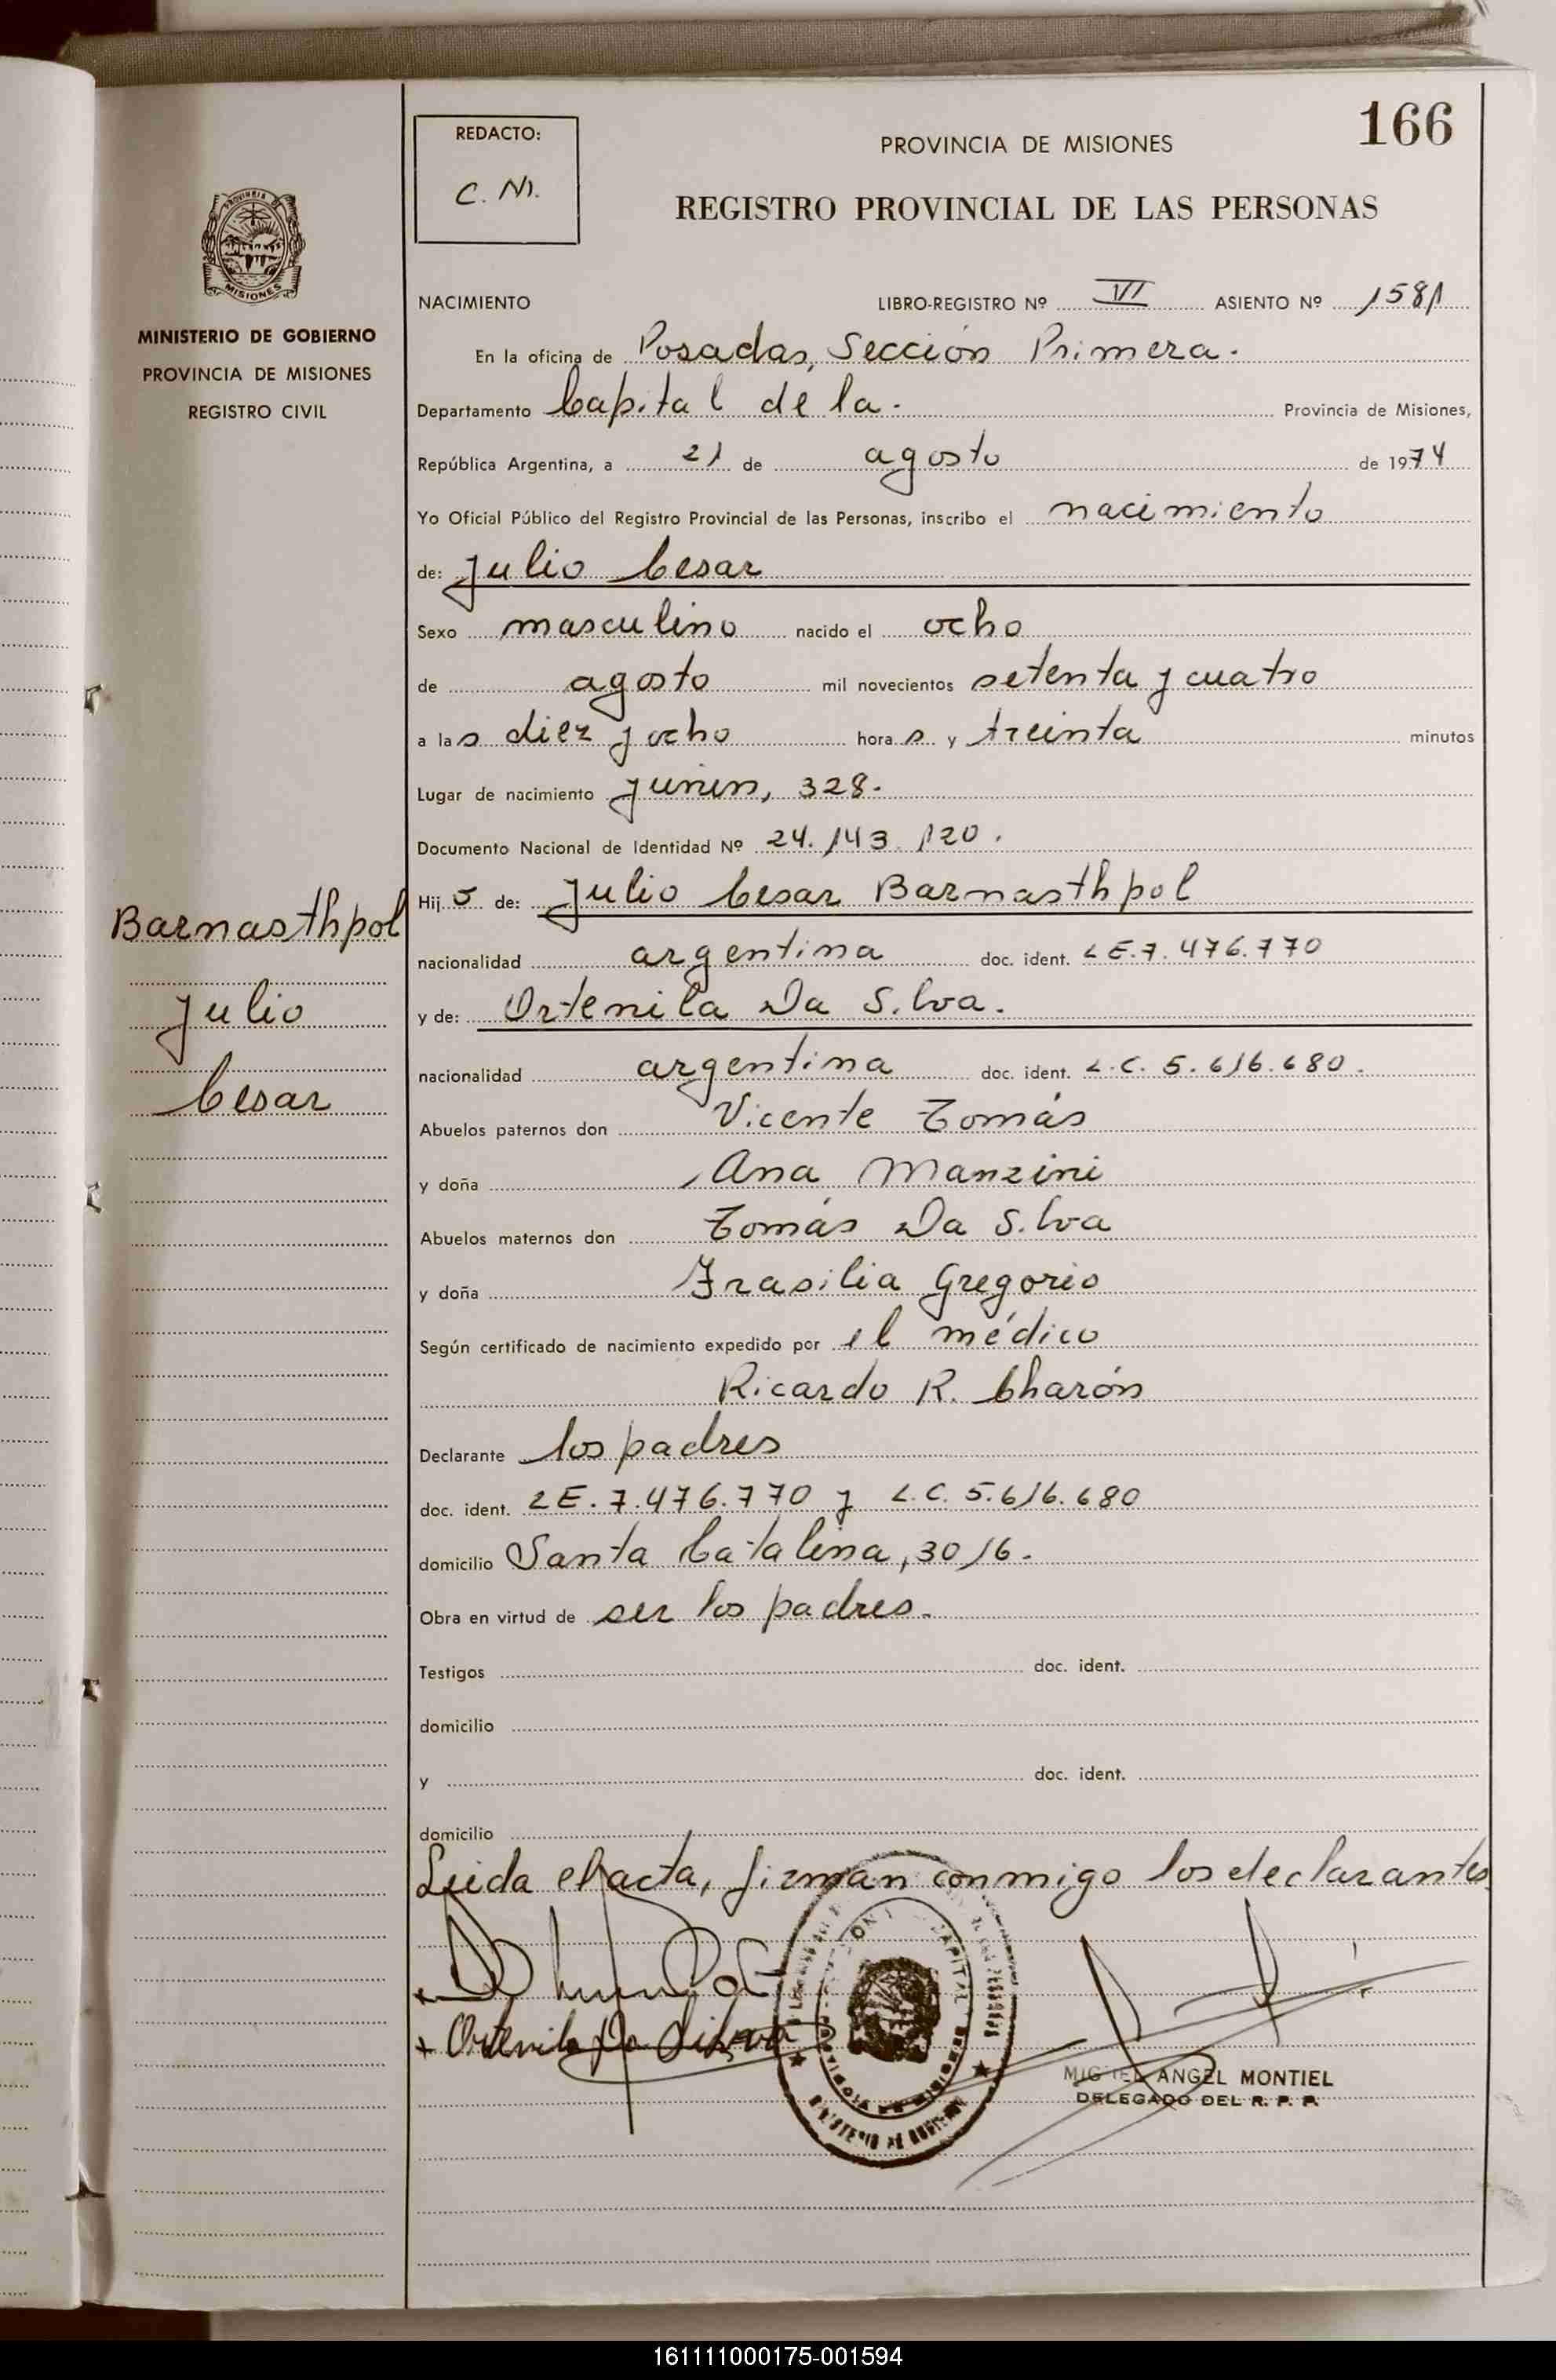 166
REDACTO:
C. M.
PROVINCIA DE MISIONES
REGISTRO PROVINCIAL DE LAS PERSONAS
MISIONES
MINISTERIO DE GOBIERNO
PROVINCIA DE MISIONES
REGISTRO CIVIL
NACIMIENTO LIBRO-REGISTRO Nº VI ASIENTO Nº 1581
En la oficina de Posadas, Sección Primera.
Departamento Capital de la. Provincia de Misiones,
República Argentina, a 21 de agosto de 1974
Yo Oficial Público del Registro Provincial de las Personas, inscribo el nacimiento
de: Julio Cesar
Sexo masculino nacido el ocho
de agosto mil novecientos setenta y cuatro
a las diez y ocho horas y treinta minutos
Lugar de nacimiento Junin, 328.
Documento Nacional de Identidad Nº 24.143.120.
Hijo de: Julio Cesar Barnasthpol
nacionalidad argentina doc. ident. LE.7.476.770
y de: Ortenila Da Silva.
nacionalidad argentina doc. ident. L.C. 5.616.680.
Abuelos paternos don Vicente Tomás
y doña Ana Manzini
Abuelos maternos don Tomás Da Silva
y doña Frasilia Gregorio
Según certificado de nacimiento expedido por el médico
Ricardo R. Charón
Declarante los padres
doc. ident. LE.7.476.770 y L.C. 5.616.680
domicilio Santa Catalina, 3016.
Obra en virtud de ser los padres.
Testigos doc. ident.
domicilio
y doc. ident.
domicilio
Leida el acta, firman conmigo los declarantes
Barnasthpol
Julio
Cesar
+ Ortenila Da Silva
MIGUEL ANGEL MONTIEL
DELEGADO DEL R. P. P.
161111000175-001594